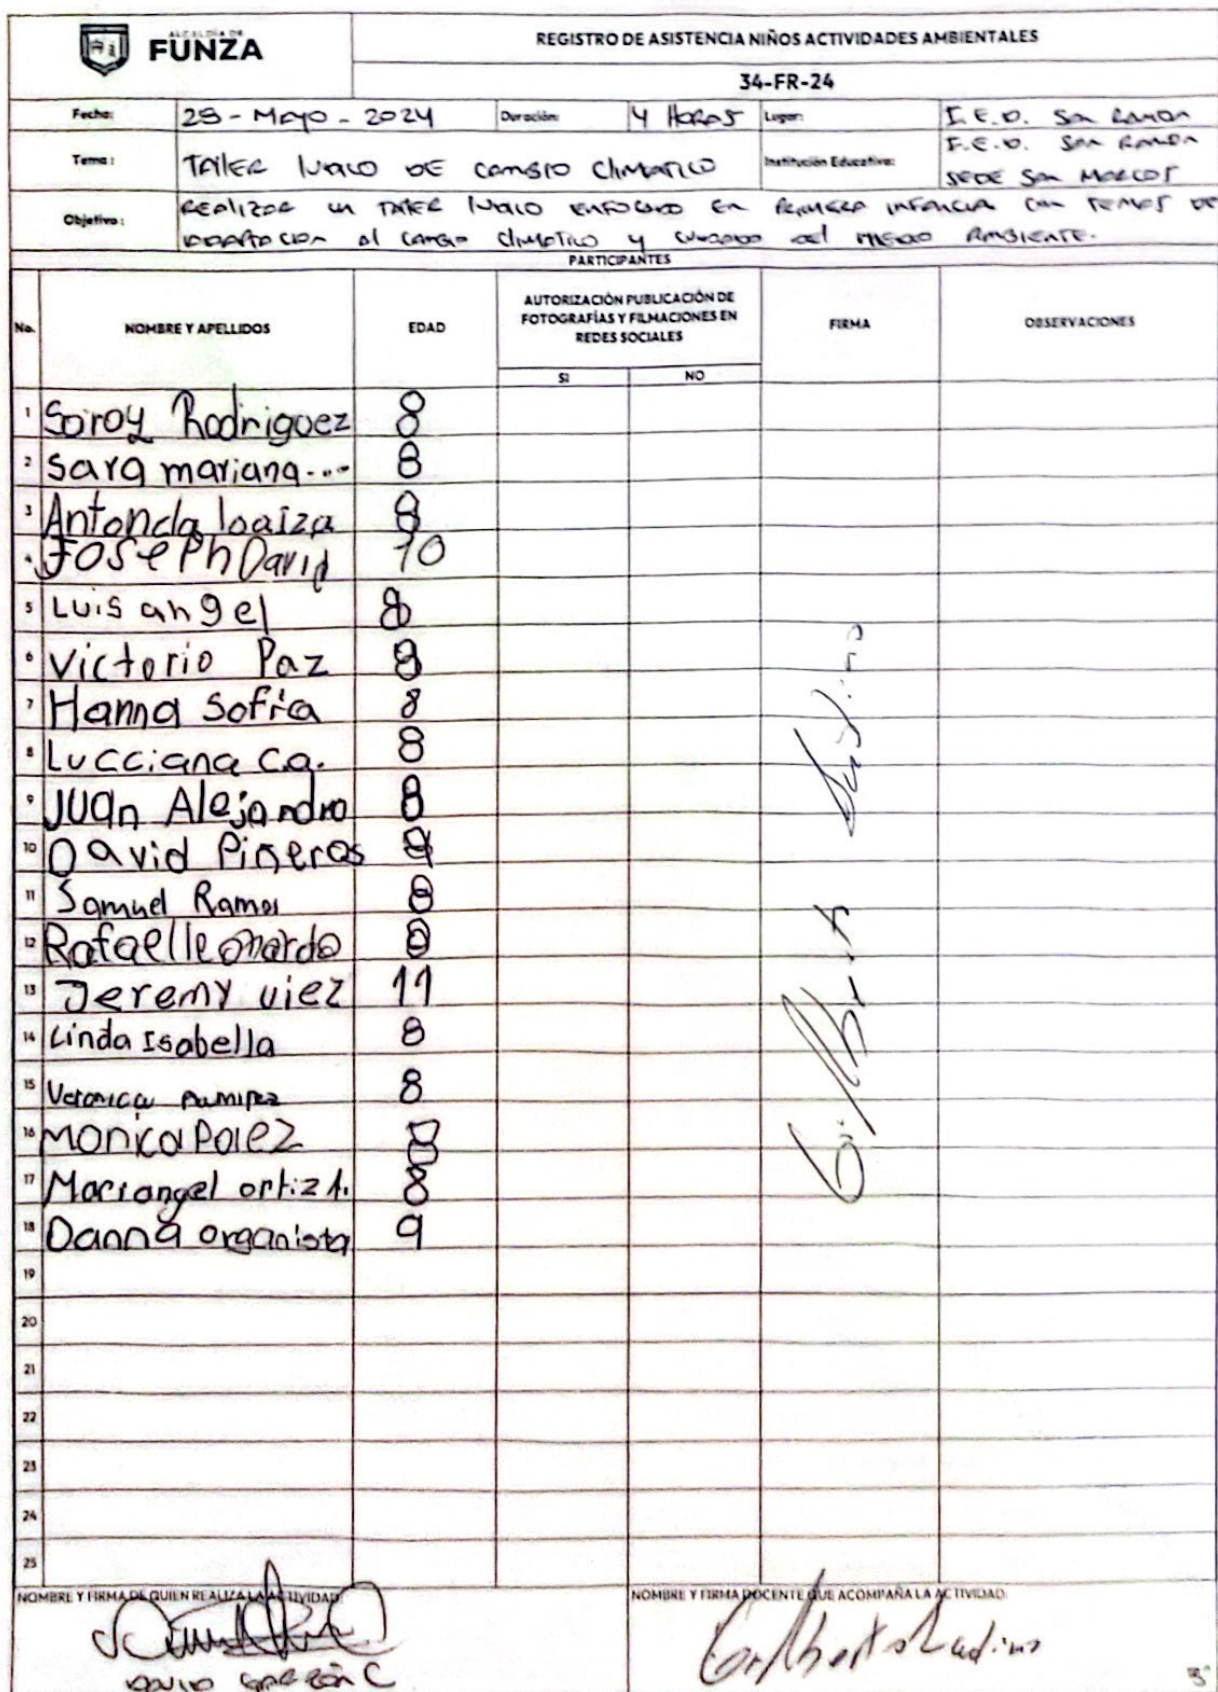 ALCALDÍA DE
FUNZA
REGISTRO DE ASISTENCIA NIÑOS ACTIVIDADES AMBIENTALES
34-FR-24
Fecha: 28 - Mayo - 2024 Duración: 4 HORAS Lugar: I.E.D. San Ramon
Tema: TALLER DE CAMBIO CLIMATICO Institución Educativa: I.E.D. San Ramon
SEDE San MARCOS
Objetivo: REALIZAR un TALLER ENFOCADO En PRIMERA INFANCIA Con TEMAS DE
al CAMBIO CLIMATICO y CUIDADO del MEDIO AMBIENTE.
PARTICIPANTES
No. NOMBRE Y APELLIDOS EDAD AUTORIZACIÓN PUBLICACIÓN DE FOTOGRAFÍAS Y FILMACIONES EN REDES SOCIALES FIRMA OBSERVACIONES
SI NO
1 Rodriguez 8
2 Sara mariana... 8
3 loaiza 8
4 JosePh David 10
5 Luis angel 8
6 Victorio Paz 8
7 Hanna Sofía 8
8 Lucciana ca. 8
9 JUan Alejandro 8
10 David Piñeros
11 Samuel Ramos 8
12 Rafael leonardo 8
13 Jeremy 11
14 Linda Isabella 8
15 Veronica Ramirez 8
16 Monica Paez 8
17 Mariangel ortiz 8
18 Danna organista 9
19
20
21
22
23
24
25
NOMBRE Y FIRMA DE QUIEN REALIZA LA ACTIVIDAD: NOMBRE Y FIRMA DOCENTE QUE ACOMPAÑA LA ACTIVIDAD:
Gilberto Ladino
DAVID GARZÓN C